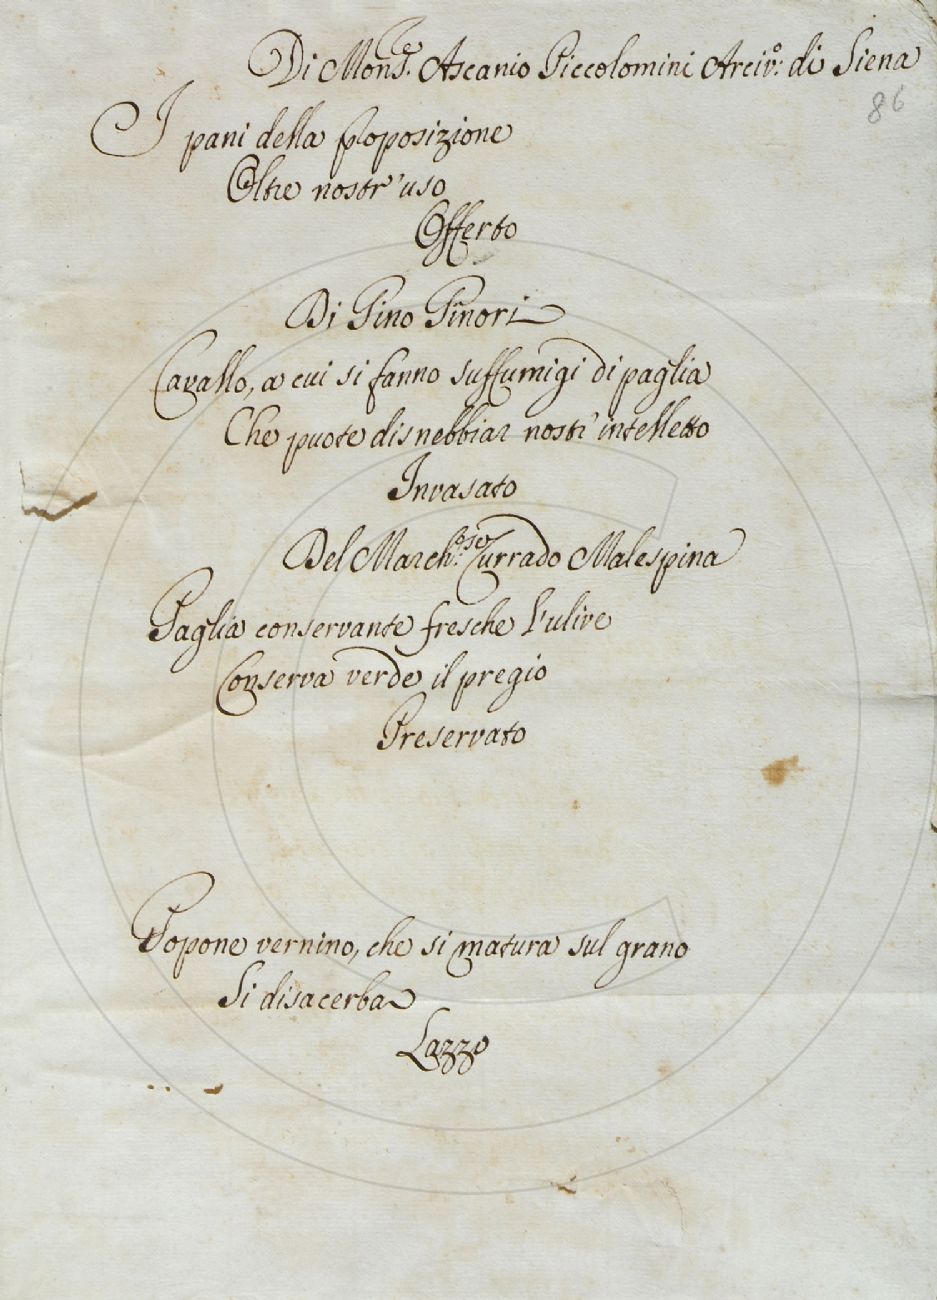 Di Mons.re Ascanio Piccolomini Arciv.o: di Siena
86
I pani della proposizione
Oltre nostr'uso
Offerto
Di Pino Pinori
Cavallo, a cui si fanno suffumigi di paglia
Che puote disnebbiar nostr'intelletto
Invasato
Del March.ese Currado Malespina
Paglia conservante fresche l'ulive
Conserva verde il pregio
Preservato
Popone vernino, che si matura sul grano
Si disacerba
Lazzo